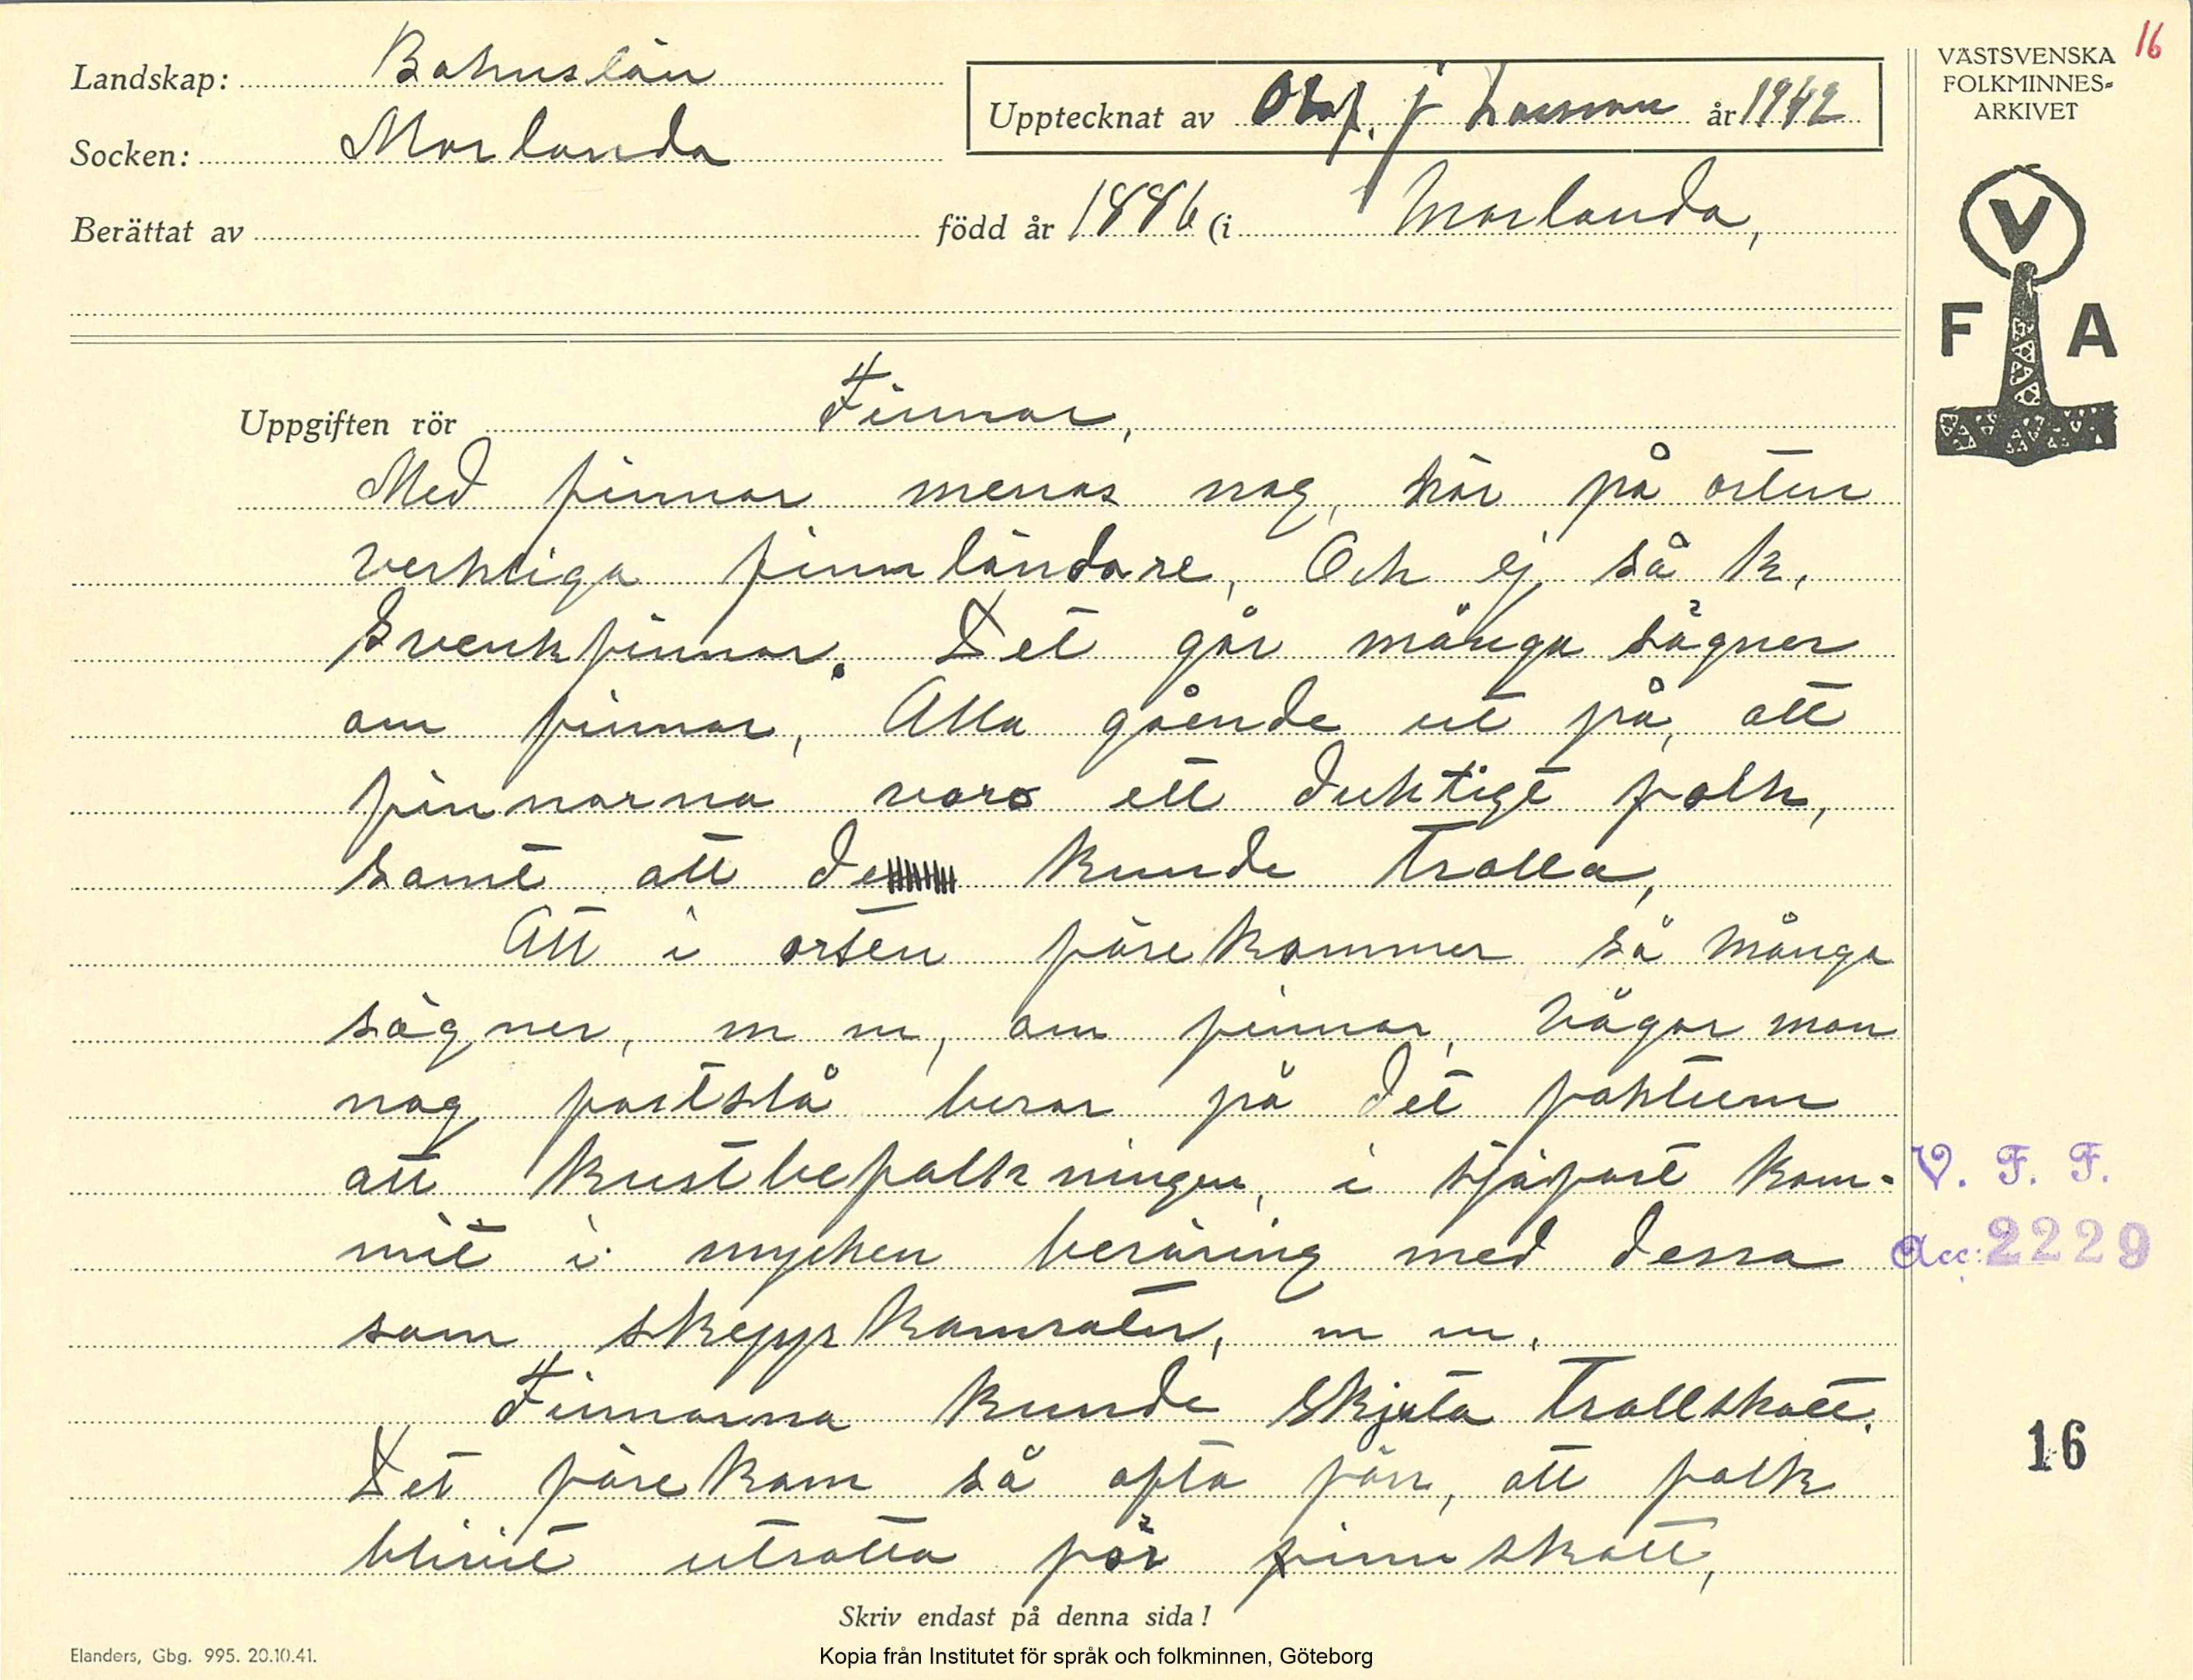 16
VÄSTSVENSKA
FOLKMINNES-
ARKIVET
Landskap: Bohuslän
Upptecknat av Olof. J Larsson år 1942
Socken: Morlanda
Berättat av född år 1886 (i Morlanda,
V
F A
Uppgiften rör Finnar,
Med finnar menas nog, här på orten
verkliga finnländare, Och ej så k,
Svenkfinnar. Det går många sägner
om finnar, Alla gående ut på, att
finnarna voro ett duktigt folk,
samt att de kunde trolla,
Att i orten förekommer så många
sägner, m m, om finnar, vågar man
nog fastslå beror på det faktum
att kustbefolkningen, i sjöfart kom-
mit i mycken beröring med dessa
som skeppskamrater, m m,
Finnarna kunde skjuta trollskott.
Det förekom så ofta förr, att folk
blivit utsatta för finnskott,
V. F. F.
Acc: 2229
16
Skriv endast på denna sida!
Elanders, Gbg. 995. 20.10.41.
Kopia från Institutet för språk och folkminnen, Göteborg